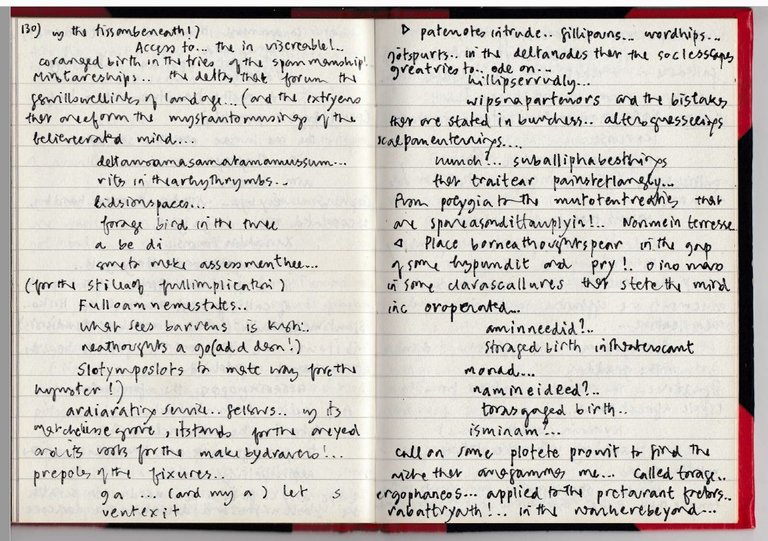 130) in the tissombeneath!)
Access to... the in viscreable!..
coranged birth in the tries of the spammanship!
Minstareships... the deltas that forum the
of landage... (and the extryens
that oneeform the of the
believerated mind...
deltamoramasamatamamussum...
rits in thearhythrymbs...
eidsionspaces...
forage bird in the three
a be di
ame to make assessmenthee...
(for the stilleof fullimplication)
Fulloamnemestates..
what sees barrens is kush..
neathoughts a go(add deon!)
Slotymposlots to mete way forethe
hymnster!)
ardiaratize service.. fellows.. in its
grove, itstands for the areyed
and its roots for the makebydravens!...
prepoles of the fixures..
ga .... (and my a) let s
ventexit
▷ patenotes intrude.. fillipains... wordhips...
jotspurts.. in the deltanodes ther the soclesscapes
greatries to.. ode on...
hillipserrudly...
wipsnapartenors and the bistakes
ther are stated in burchess.. alterguesseeings
scalpamentenings....
nunch?.. suballiphabesthings
ther traitear painstetlanely...
From polygia to the mutotentreaties that
are Normein terresse
◁ Place borneathoughtspear in the gap
of some hypundit and pry!. o ino maro
in some clarascallures ther stete the mind
inc oroperated...
aminneedid?..
storaged birth intheaterocant
monad...
namineideed?..
torasgaged birth..
isminam?...
call on some plotete prowit to find the
niche that me... called torage..
ergophaneos... applied to the pretaurant fretors..
rabattryath!.. in the wanherebeyond...